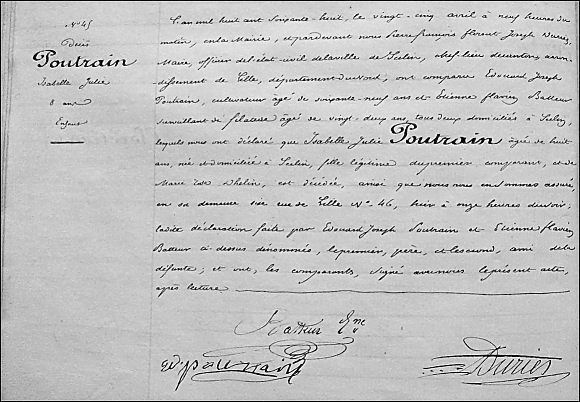 N° 45
Décès
Poutrain
Isabelle Julie
8 ans
Enfant
L'an mil huit cent soixante-huit, le vingt-cinq avril à neuf heures du
matin, en la Mairie, et pardevant nous Pierre François Florent Joseph Duriez,
Maire, officier de l'état-civil de la ville de Seclin, chef-lieu de canton, arron-
dissement de Lille, département du Nord, ont comparu Edouard Joseph
Poutrain, cultivateur âgé de soixante-neuf ans et Etienne Flavien Batteur
surveillant de filature âgé de vingt-deux ans, tous deux domiciliés à Seclin,
lesquels nous ont déclaré que Isabelle Julie Poutrain âgée de huit
ans, née et domiciliée à Seclin, fille légitime du premier comparant, et de
Marie Dhelin, est décédée, ainsi que nous nous en sommes assuré,
en sa demeure sise rue de Lille N° 46, hier à onze heures du soir;
ladite déclaration faite par Edouard Joseph Poutrain et Etienne Flavien
Batteur ci-dessus dénommés, le premier, père, et le second, ami de la
défunte; et ont, les comparants, signé avec nous le présent acte,
après lecture.
Batteur Enne
Ed poutrain
Duriez